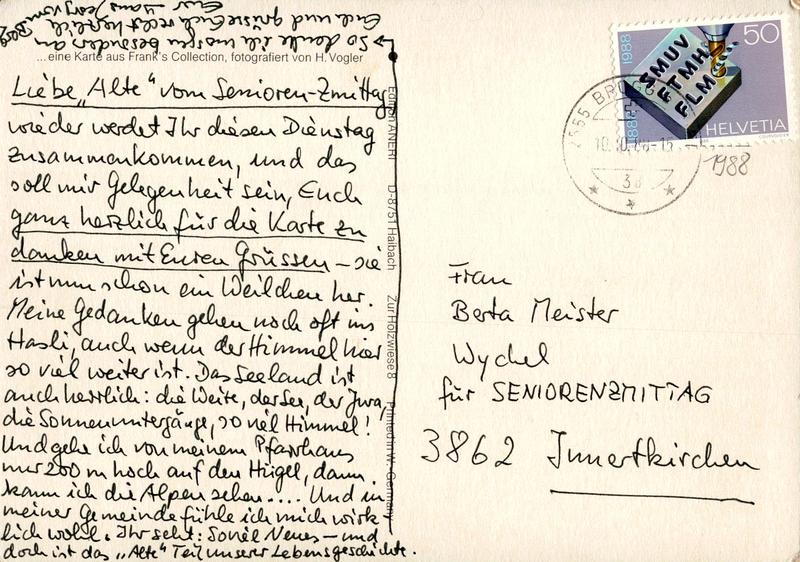 Liebe „Alte" vom Senioren-Zmittag
wieder werdet Ihr diesen Dienstag
zusammenkommen, und das
soll mir Gelegenheit sein, Euch
ganz herzlich für die Karte zu
danken mit Euren Grüssen – sie
ist nun schon ein Weilchen her.
Meine Gedanken gehen noch oft ins
Hasli, auch wenn der Himmel hier
so viel weiter ist. Das Seeland ist
auch herrlich: die Weite, der See, der Jura,
die Sonnenuntergänge, so viel Himmel!
Und gehe ich von meinem Pfarrhaus
nur 200 m hoch auf den Hügel, dann
kann ich die Alpen sehen.... Und in
meiner Gemeinde fühle ich mich wirk-
lich wohl. Ihr seht: Soviel Neues – und
doch ist das „Alte" Teil unserer Lebensgeschichte.
→ So denke ich morgen besonders an
Euch und grüsse Euch recht herzlich,
Euer Hans Jeorg vom
...eine Karte aus Frank's Collection, fotografiert von H. Vogler
Edition ANERI D-8751 Haibach Zur Holzwiese 8 Printed in W. Germany
1988
50
SMUV
FTMH
FLM
HELVETIA
2555 BRÜGG
10.10.88-15
1988
Frau
Berta Meister
Wychel
für SENIORENZMITTAG
3862 Innertkirchen